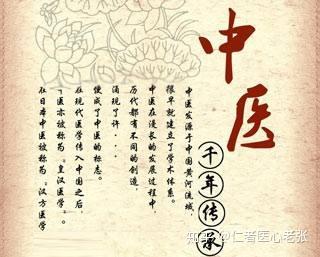 中医
千年传承
中医发源于中国黄河流域，
很早就建立了学术体系。
中医在漫长的发展过程中，
历代都有不同的创造，
涌现了许...
便成了中医的标志。
在现代医学传入中国之后，
“医亦被称为“皇汉医学”。
在日本中医被称为“汉方医学
知乎 @仁者医心老张